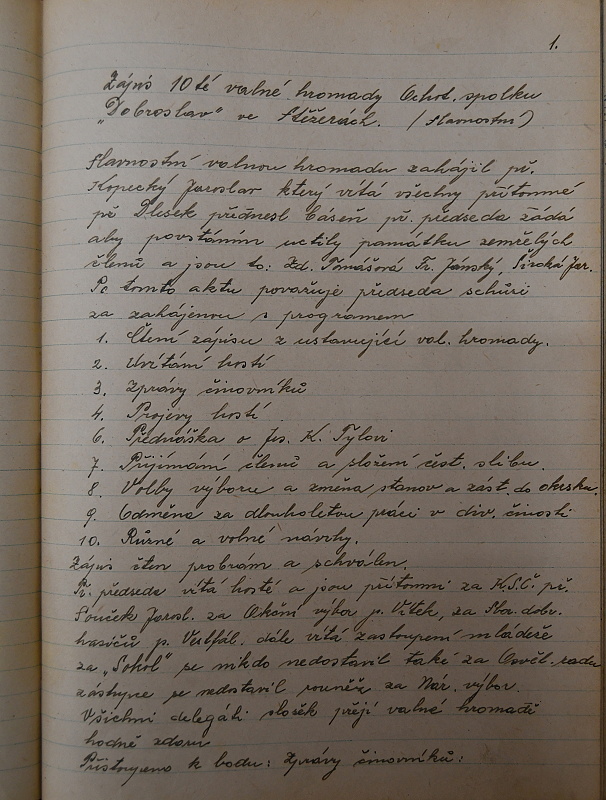 1.
Zápis 10té valné hromady Ochot. spolku
„Dobroslav" ve Stěžerách. (slavnostní)
Slavnostní valnou hromadu zahájil př.
Kopecký Jaroslav který vítá všechny přítomné
př Dlesek přednesl báseň př. předseda žádá
aby povstáním uctily památku zemřelých
členů a jsou to: Zd. Tomášová Fr. Jánský, Široká Jar.
Po tomto aktu považuje předseda schůzi
za zahájenou s programem
1. Čtení zápisu z ustavující val. hromady.
2. Uvítání hostí
3. Zprávy činovníků
4. Projevy hostí
6. Přednáška o Jos. K. Tylovi
7. Přijímání členů a složení čest. slibu.
8. Volby výboru a změna stanov a zást. do okrsku.
9. Odměna za dlouholetou práci v div. činosti
10. Různé a volné návrhy.
Zápis čten probrám a schválen.
Př. předseda vítá hosté a jsou přítomni za K.S.Č. př.
Souček Jarosl. za Akční výbor p. Vítek, za Sbor dobr.
hasičů p. Vestfál. dále vítá zastoupení mládeže
za „Sokol" se nikdo nedostavil také za Osvět. radu
zástupce se nedostavil rovněž za Nár. výbor.
Všichni delegáti složek přejí valné hromadě
hodně zdaru
Přistoupeno k bodu: Zprávy činovníků: